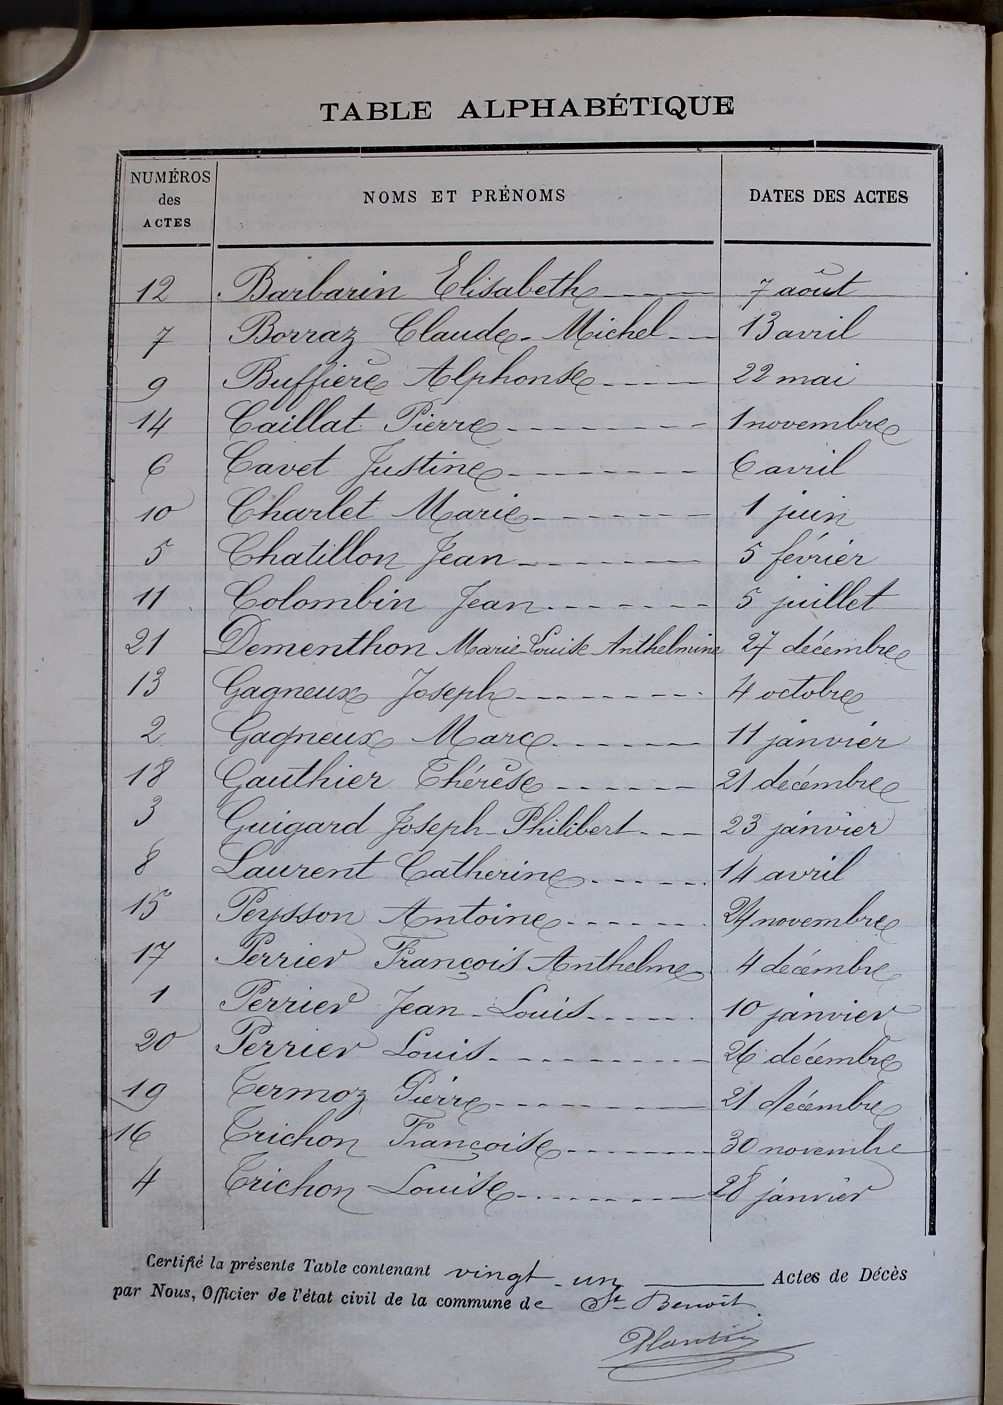 TABLE ALPHABÉTIQUE
NUMÉROS des ACTES NOMS ET PRÉNOMS DATES DES ACTES
12 Barbarin Elisabeth 7 août
7 Borraz Claude-Michel 13 avril
9 Buffière Alphonse 22 mai
14 Caillat Pierre 1 novembre
6 Cavet Justine 6 avril
10 Charlet Marie 1 juin
5 Chatillon Jean 5 février
11 Colombin Jean 5 juillet
21 Dementhon Marie-Louise Anthelmine 27 décembre
13 Gagneux Joseph 4 octobre
2 Gagneux Marc 11 janvier
18 Gauthier Thérèse 21 décembre
3 Guigard Joseph-Philibert 23 janvier
8 Laurent Catherine 14 avril
15 Peysson Antoine 24 novembre
17 Perrier François Anthelme 4 décembre
1 Perrier Jean-Louis 10 janvier
20 Perrier Louis 26 décembre
19 Termoz Pierre 21 décembre
16 Trichon Françoise 30 novembre
4 Trichon Louise 28 janvier
Certifié la présente Table contenant vingt-un Actes de Décès
par Nous, Officier de l'état civil de la commune de St Benoit